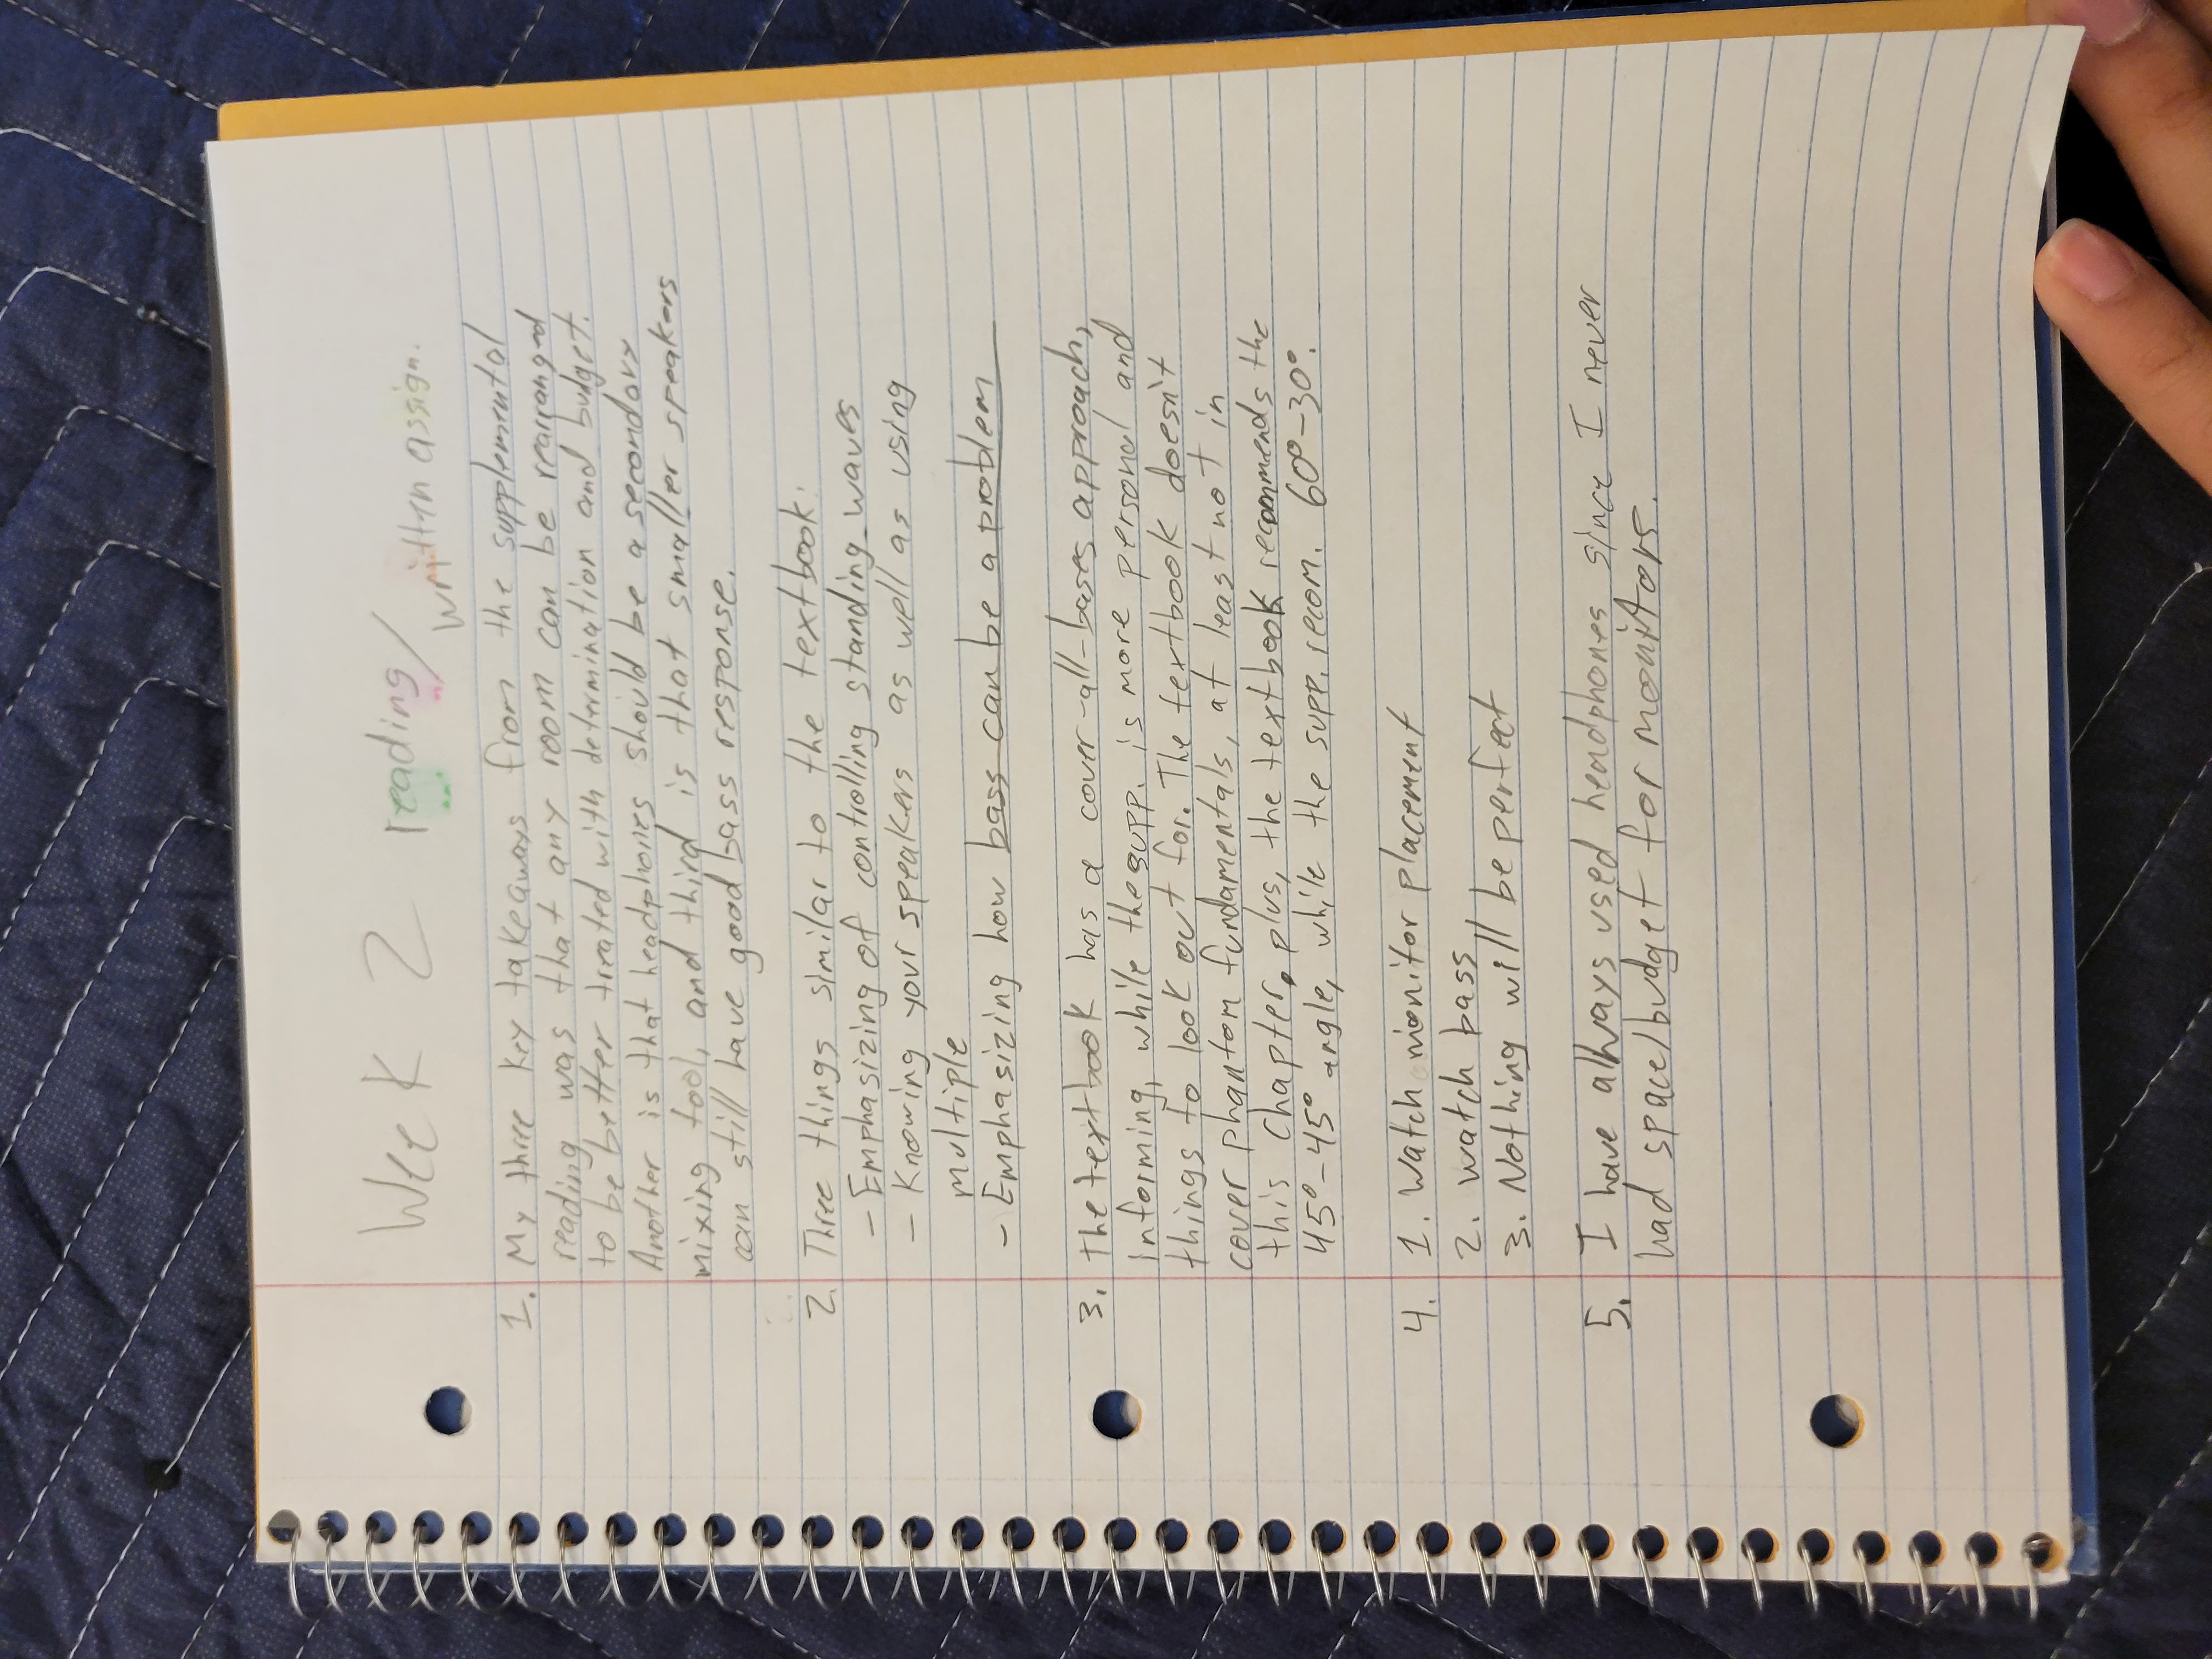 Week 2 reading/
written assign.
1. My three key takeaways from the supplemental
reading was that any room can be rearranged
to be better treated with determination and budget.
Another is that headphones should be a secondary
mixing tool, and third is that smaller speakers
can still have good bass response.
2. Three things similar to the textbook:
- Emphasizing of controlling standing waves
- Knowing your speakers as well as using
multiple
- Emphasizing how bass can be a problem
3. The textbook has a cover-all-bases approach,
informing, while the supp. is more personal and
things to look out for. The textbook doesn't
cover phantom fundamentals, at least not in
this chapter, plus, the textbook recommends the
45°-45° angle, while the supp. recom. 60°-30°.
4. 1. Watch monitor placement
2. watch bass
3. Nothing will be perfect
5. I have always used headphones since I never
had space/budget for monitors.